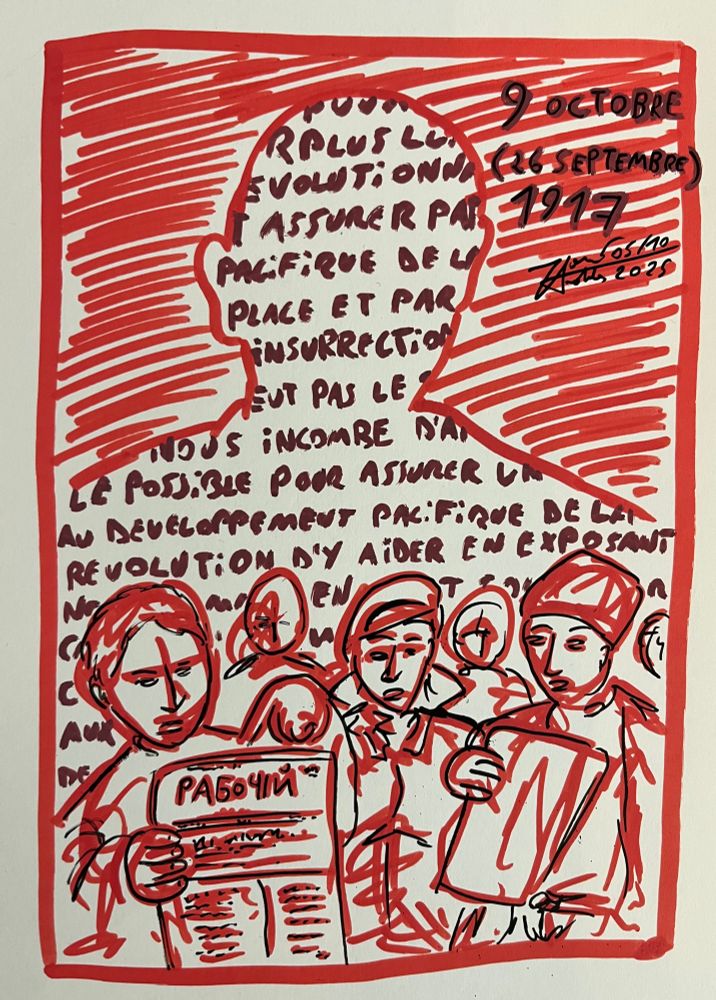 9 OCTOBRE
(26 SEPTEMBRE)
1917
05/10
2025
POUR
R PLUS LO
EVOLUTIONNA
T ASSURER PAR
PACiFiQUE DE LA
PLACE ET PAR
iNSURRECTiON
EUT PAS LE
NOUS iNCOMBE D'AI
LE POSSiBLE POUR ASSURER UN
AU DEVELOPPEMENT PACiFiQUE DE LA
REVOLUTiON D'Y AiDER EN EXPOSANT
EN
AUX
DE
РАБОЧІЙ